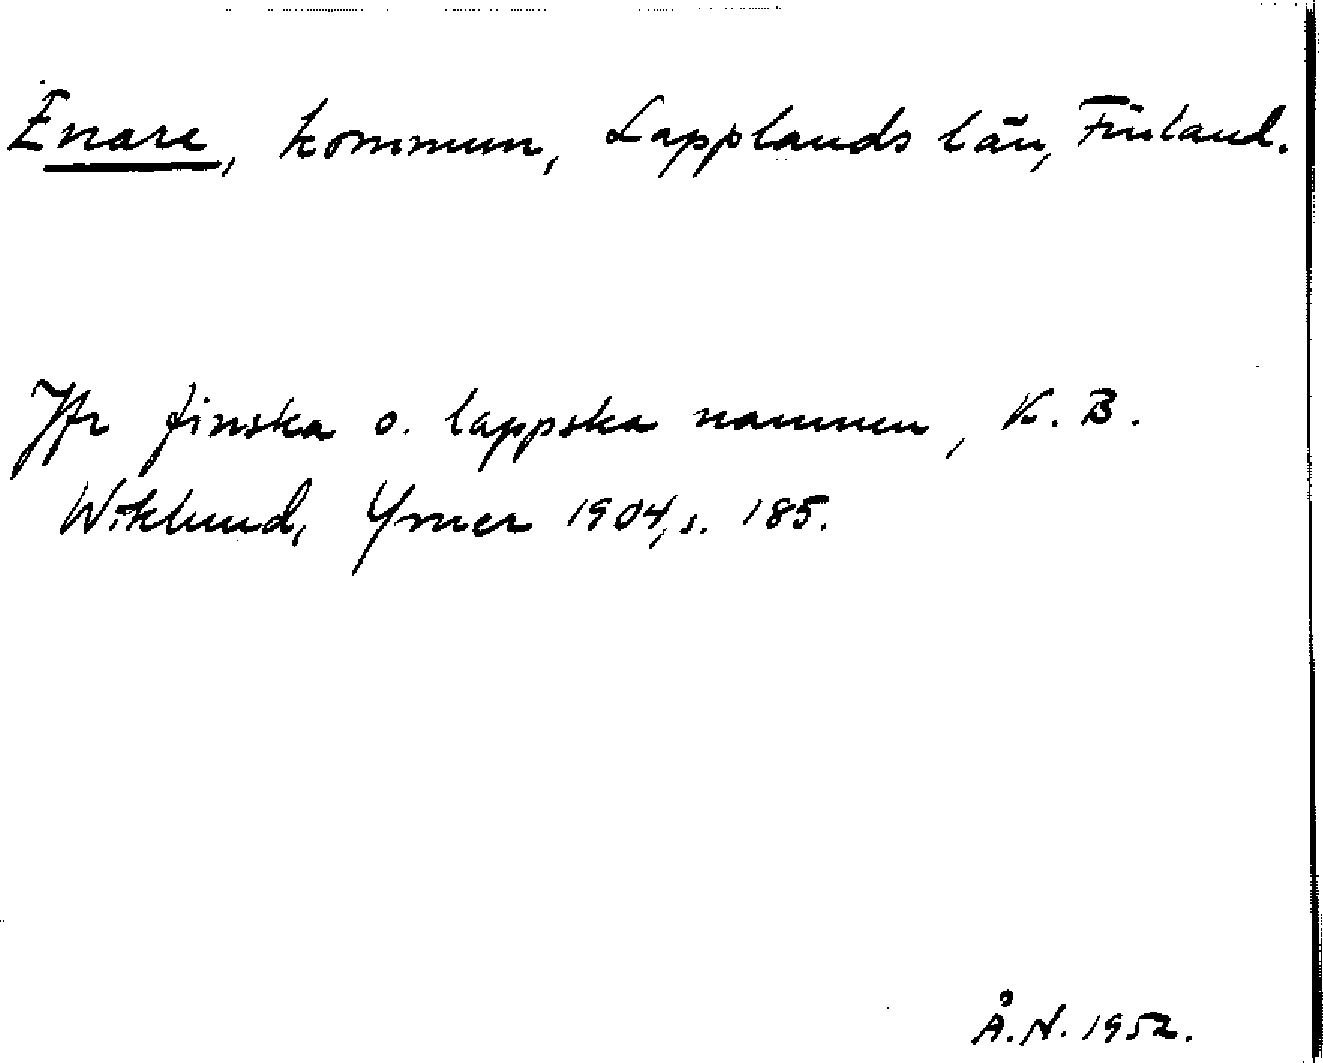 Enare, kommun, Lapplands län, Finland.
Jfr finska o. lappska namnen, K. B.
Wiklund, Ymer 1904, s. 185.
Å. N. 1952.